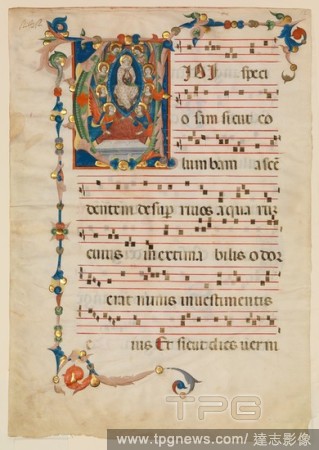 VIDI speci
o sam sicut co
lumbam ascē
dentem desup riuos a qua rūz
cuius inextima bilis o dor
erat nimis inuestimentis
e ius Et sicut dies uerni
TPG
www.tpgnews.com / 達志影像